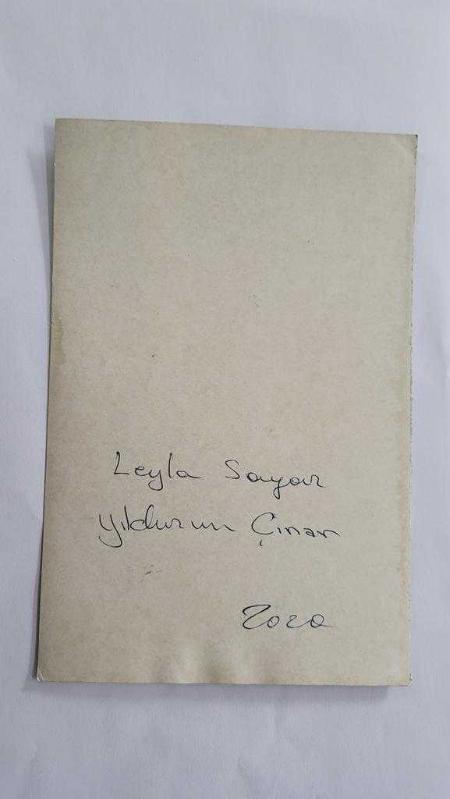 Leyla Sayar
Yıldırım Çınar
Zozo